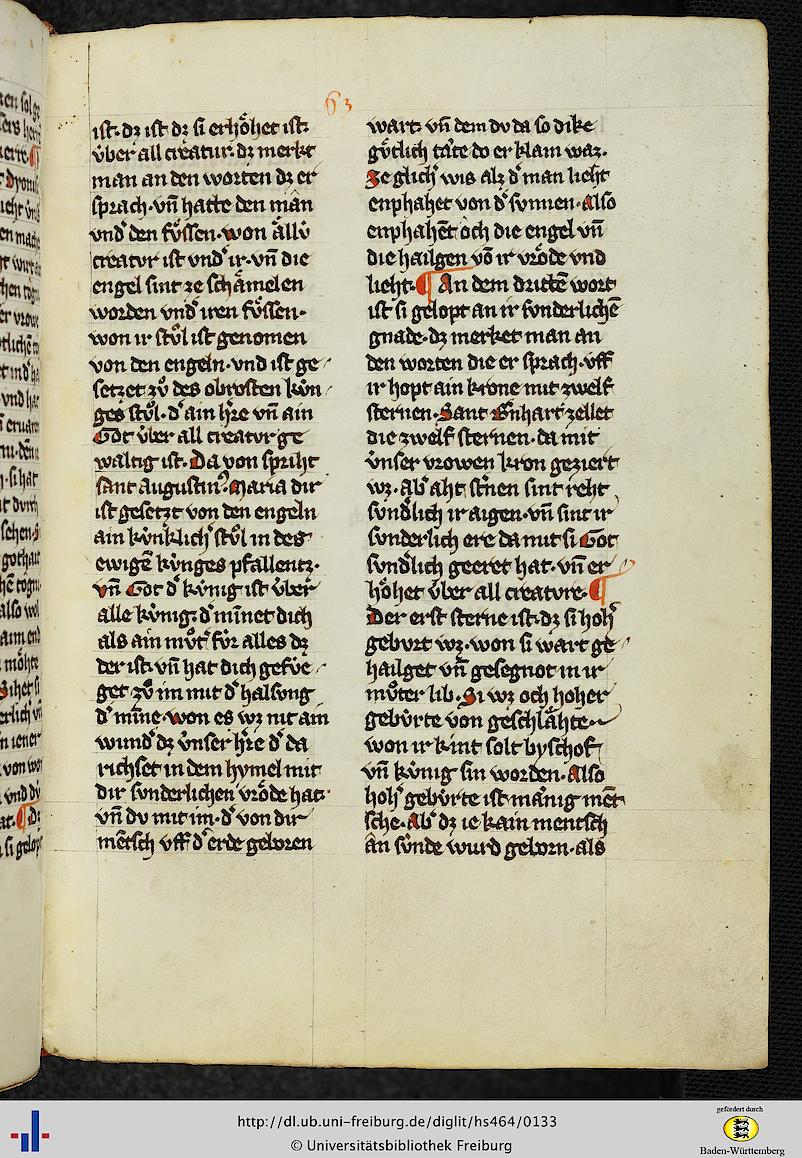 63
ist· dz ist dz si erhoͤhet ist·
v̇ber all creatur· dz merkt
man an den worten dz er
sprach· vn̄ hatte den mân
vnd' den fuͤssen· won aͤllv̇
creatvr ist vnd' ir· vn̄ die
engel sint ze schaͤmelen
worden vnd' iren fuͤssen·
won ir stuͦl ist genomen
von den engeln· vnd ist ge
setzet zuͦ des obrosten kv̇n
ges stuͦl· d' ain h're vn̄ ain
Got v̇ber all creatvr ge
waltig ist· Da von spriht
sant Augustin' Maria dir
ist gesetzt von den engeln
ain kv̇nklich' stuͦl in des
ewigē kv̇nges pfallentz·
vn̄ Got d' kv̇nig ist v̇ber
alle kv̇nig· d' mīnet dich
als ain muͦt' fv̇r alles dz
der ist· vn̄ hat dich gefuͤe
get zuͦ im mit d' halsvng
d' mīne· won es wz nit ain
wund' dz v̇nser h're d' da
richset in dem hymel mit
dir svnderlichen vroͤde hat·
vn̄ dv mit im· d' von dir
mētsch vff d' erde geboren
wart· vn̄ dem dv da so dike
guͤtlich taͤte do er klain waz·
Ze glich' wis alz d' man lieht
enphahet von d' svnnen· Also
enphahēt oͤch die engel vn̄
die hailgen vō ir vroͤde vnd
lieht· ¶ An dem dritē wort
ist si gelopt an ir svnderlichē
gnade· dz merket man an
den worten die er sprach· vff
ir hopt ain krone mit zwelf
sternen· Sant B'nhart zellet
die zwelf sternen· da mit
v̇nser vrowen kron geziert
wz· Ab' aht st'nen sint reht
svnd'lich ir aigen· vn̄ sint ir
svnderlich ere da mit si Got
svnd'lich geeret hat· vn̄ er
hoͤhet v̇ber all creatvre· ¶
Der erst sterne ist· dz si hoh'
gebvrt wz· won si wart ge
hailget vn̄ gesegnot in ir
muͦter lib· Si wz och hoher
gebv̇rte von geschlaͤhte
won ir kint solt byschof
vn̄ kv̇nig sin worden· Also
hoh' gebv̇rte ist mānig mēt
sche· Ab' dz ie kain mentsch
ân sv̇nde wurd geborn· als
http://dl.ub.uni-freiburg.de/diglit/hs464/0133
© Universitätsbibliothek Freiburg
gefördert durch
Baden-Württemberg